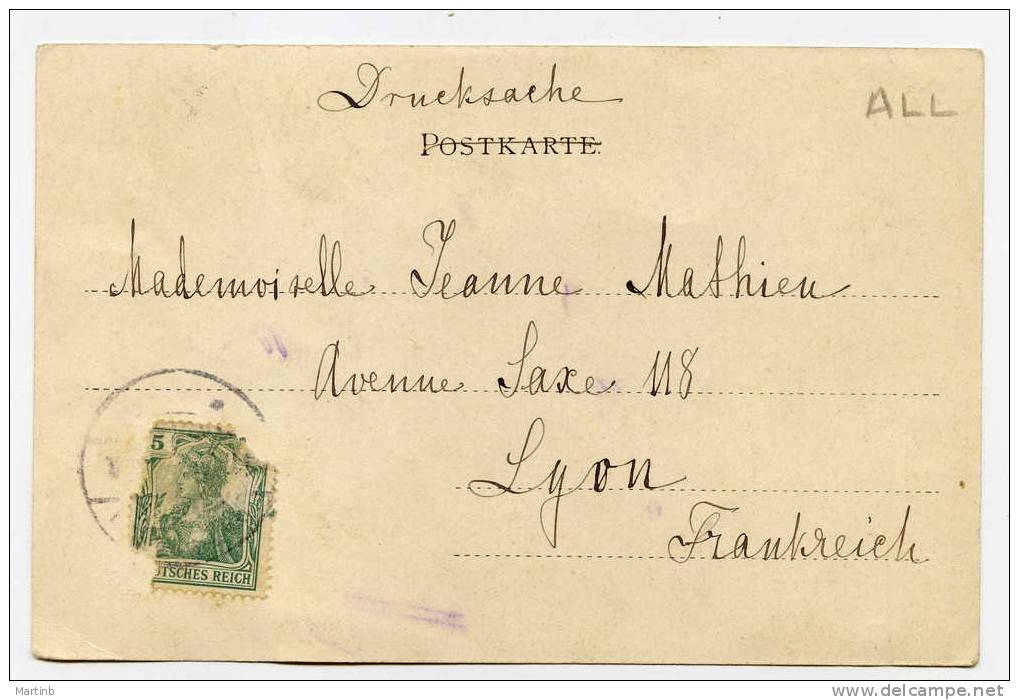 Drucksache
ALL
POSTKARTE.
Mademoiselle Jeanne Mathieu
Avenue Saxe 118
Lyon
Frankreich
5
UTSCHES REICH
Martinb
www.delcampe.net